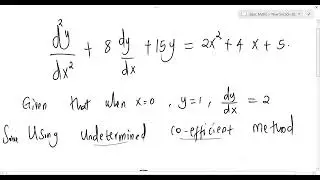 d²y/dx² + 8 dy/dx + 15y = 2x² + 4x + 5.
Given that when x=0, y=1, dy/dx = 2
Using undetermined co-efficient method